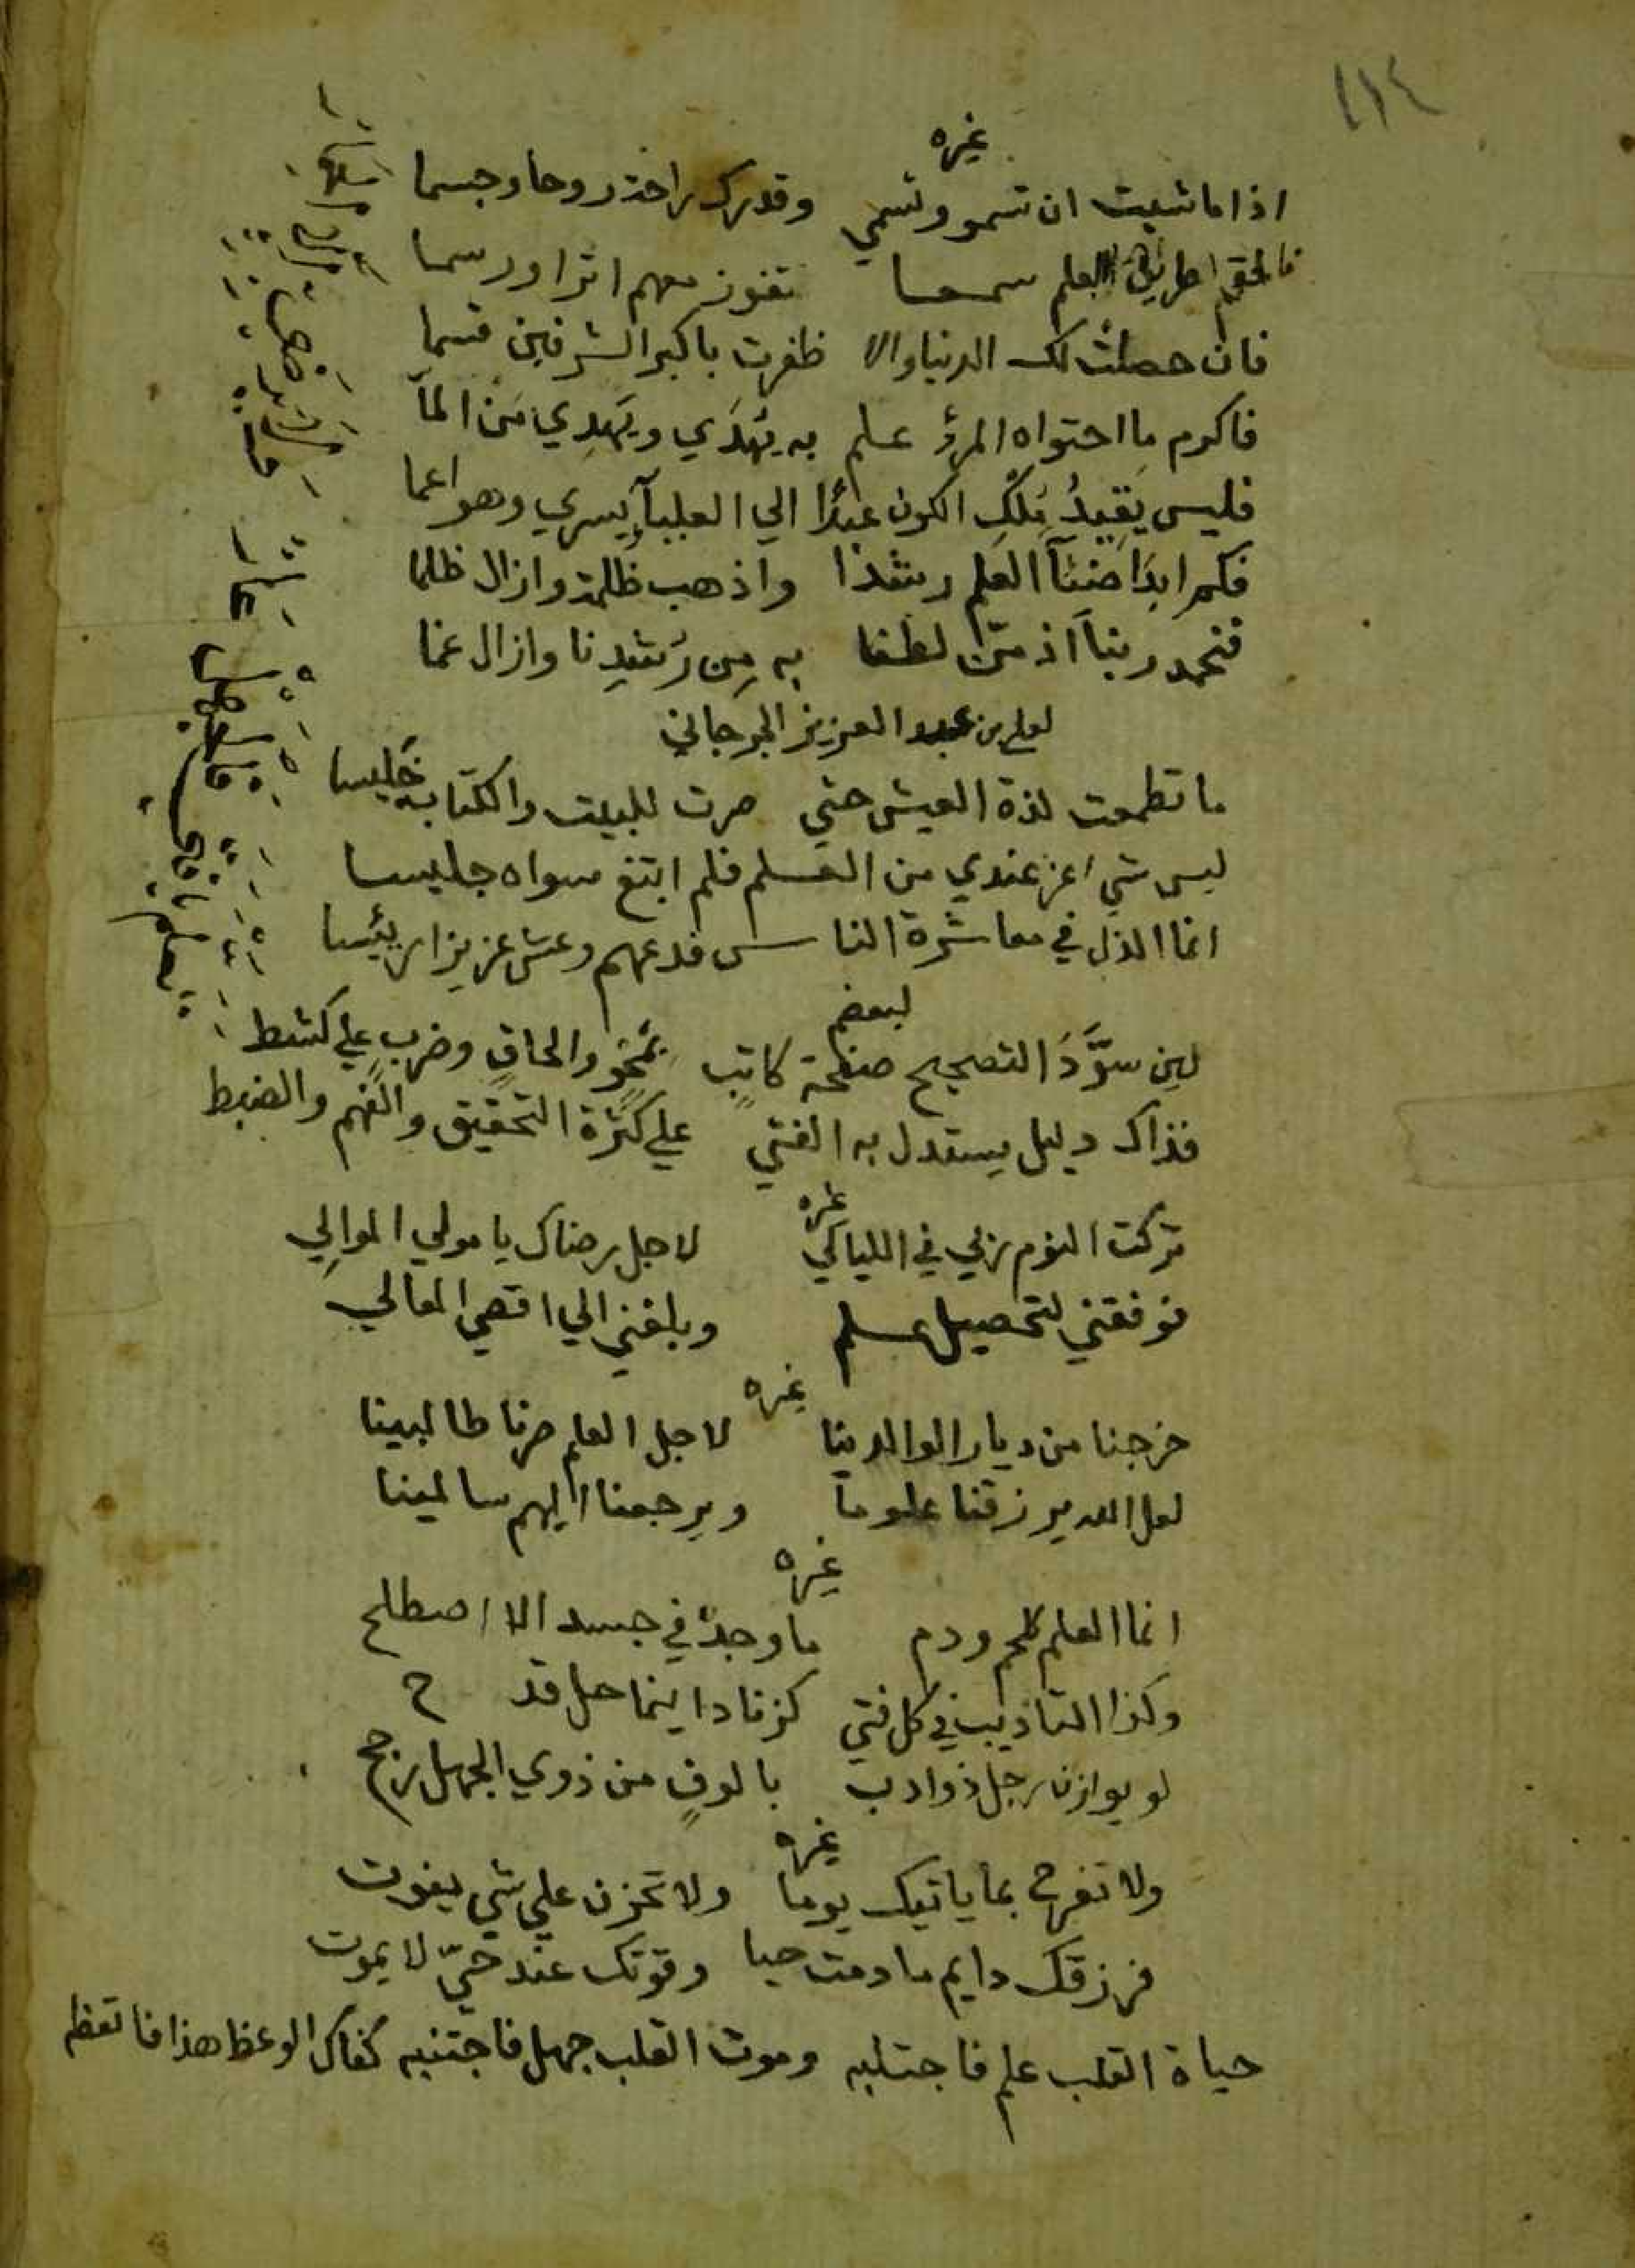 ١١٤
غيره
اذا ما شيت ان تسمو وتسمي وقدرك راحة روحا وجسما
فالحق اهل العلم سمعا تفوز معهم اثرا ورسما
فان حصلت لك الدنيا والا ظفرت باكبر الشرفين قسما
فاكرم ما احتواه المرؤ علم به يُهدَي ويَهدِي مَن المآ
فليس يَقِيدُ مُلك الكون عبدًا الي العليآ يسري وهو اعما
فكم ابدَا ضيَآ العلم رشدا واذهب ظلمة وازال ظلما
فنحمد ربنا اذ مَنّ لطفا به مِن رُشدِنا وازال غما
لعلي بن عبد العزيز الجرجاني
ما تطعمت لذة العيش حتي صرت للبيت والكتاب جَليسا
ليس شي اعز عندي من العلم فلم ابتغ سواه جليسا
انما الذل في معاشرة الناس فدعهم وعش عزيزا رئيسا
لبعضهم
لين سوَّدَ التصحيح صفحة كاتب بمحوٍ والحاقٍ وضربٍ علي كشط
فذاك دليل يستدل به الفتي علي كثرة التحقيق والفهم والضبط
غيره
تركت النوم ربي في الليالي لاجل رضاك يا مولي الموالِي
فوفقني لتحصيل علم وبلغني الي اقصي المعالي
غيره
خرجنا من ديار الوالدينا لاجل العلم صرنا طالبينا
لعل الله يرزقنا علوما ويرجعنا اليهم سالمينا
غيره
انما العلم لحم ودم ما وجد في جسد الا اصطلح
وكذا التاديب في كل فتي كزناد اينما حل قد ح
لو يوازن رجل ذو ادب بالوفٍ من ذوي الجهل رجح
غيره
ولا تفرح بما ياتيك يوما ولا تحزن علي شي يفوت
فرزقك دايم ما دمت حيا وقوتك عند حيّ لا يموت
حياة القلب علم فاجتلبه وموت القلب جهل فاجتنبه كفاك الوعظ هذا فاتعظ